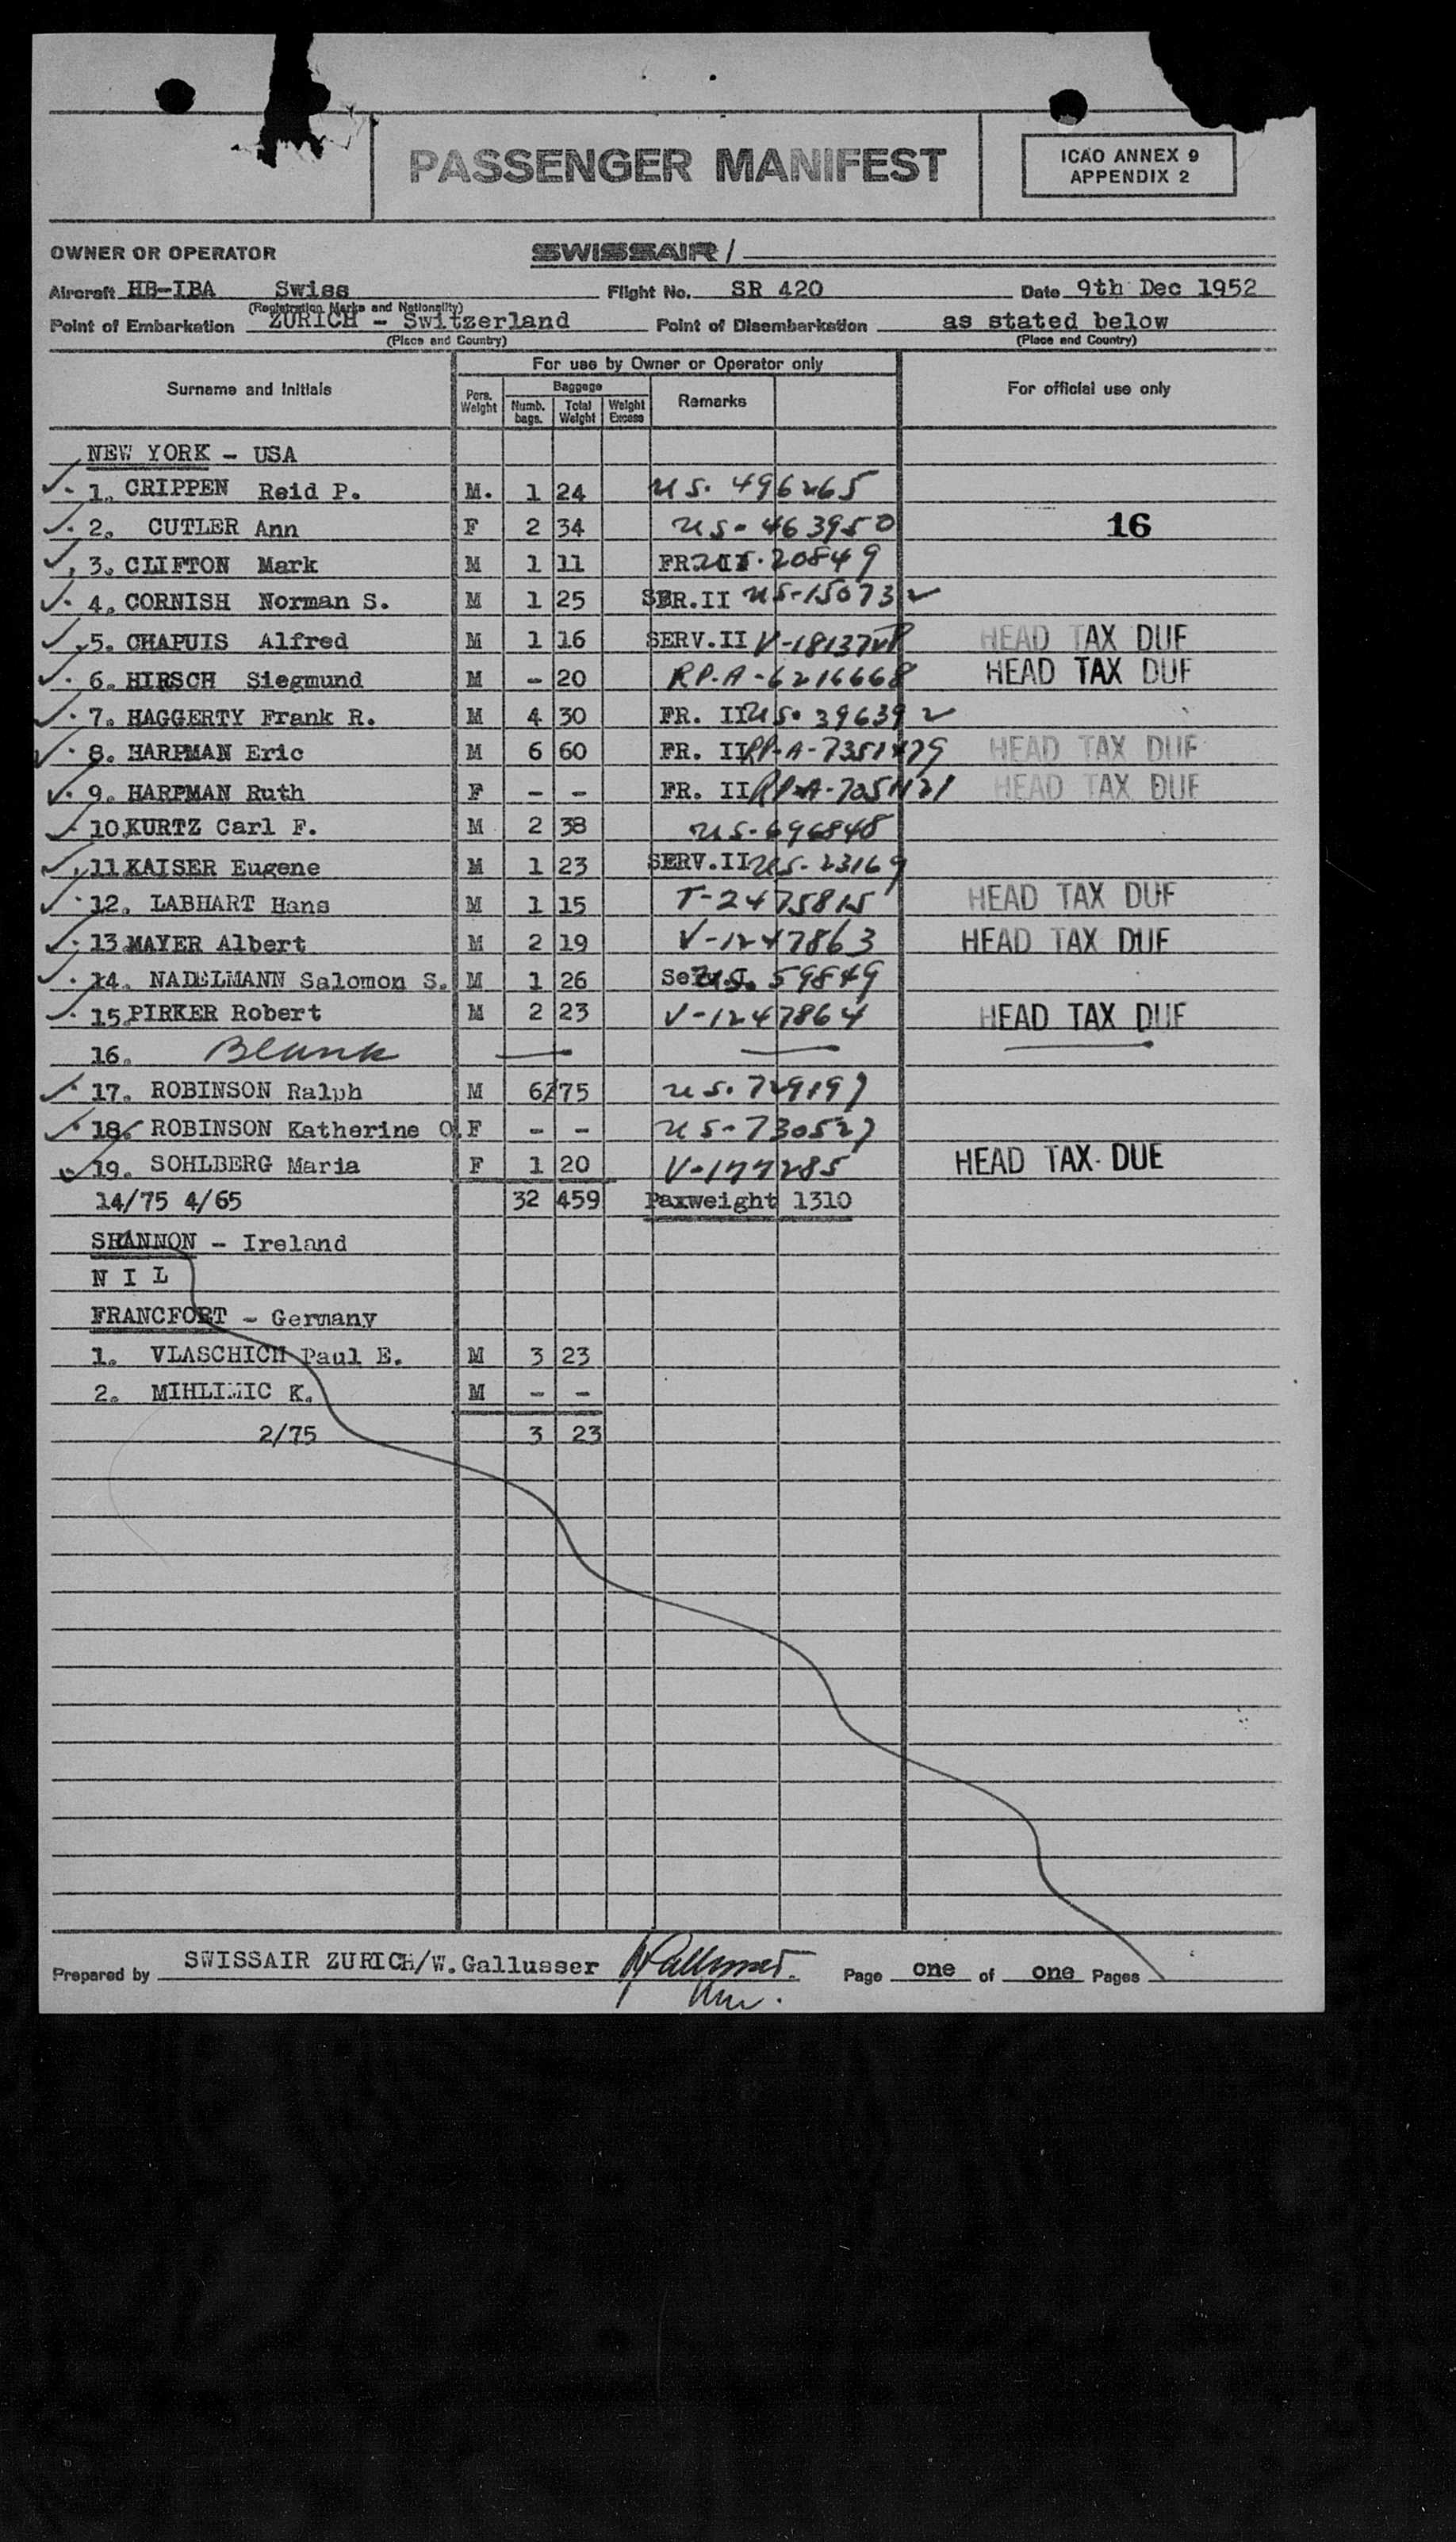 PASSENGER MANIFEST
ICAO ANNEX 9
APPENDIX 2
OWNER OR OPERATOR SWISSAIR /
Aircraft HB-IBA Swiss Flight No. SR 420 Date 9th Dec 1952
(Registration Marks and Nationality)
Point of Embarkation ZURICH - Switzerland Point of Disembarkation as stated below
(Place and Country) (Place and Country)
For use by Owner or Operator only
Surname and Initials Pers. Weight Baggage Remarks For official use only
Numb. bags. Total Weight Weight Excess
NEW YORK - USA
1. CRIPPEN Reid P. M. 1 24 US. 496265
2. CUTLER Ann F 2 34 US- 463950 16
3. CLIFTON Mark M 1 11 FR. II US. 20849
4. CORNISH Norman S. M 1 25 SER.II US-150732
5. CHAPUIS Alfred M 1 16 SERV.II HEAD TAX DUE
6. HIRSCH Siegmund M - 20 RP.A-6216668 HEAD TAX DUE
7. HAGGERTY Frank R. M 4 30 FR. II US. 396392
8. HARPMAN Eric M 6 60 FR. II RP-A-7351479 HEAD TAX DUE
9. HARPMAN Ruth F - - FR. II RP-A-7051121 HEAD TAX DUE
10 KURTZ Carl F. M 2 38 US-696848
11 KAISER Eugene M 1 23 SERV.II US-23169
12. LABHART Hans M 1 15 T-2475815 HEAD TAX DUE
13 MAYER Albert M 2 19 V-1247863 HEAD TAX DUE
14. NADELMANN Salomon S. M 1 26 US. 59849
15. PIRKER Robert M 2 23 V-1247864 HEAD TAX DUE
16. Blank
17. ROBINSON Ralph M 6/75 US. 729197
18. ROBINSON Katherine O. F - - US-730527
19. SOHLBERG Maria F 1 20 V-177285 HEAD TAX DUE
14/75 4/65 32 459 Paxweight 1310
SHANNON - Ireland
N I L
FRANCFORT - Germany
1. VLASCHICH Paul E. M 3 23
2. MIHLIMIC K. M - -
2/75 3 23
Prepared by SWISSAIR ZURICH/W.Gallusser WGallusser. Page one of one Pages